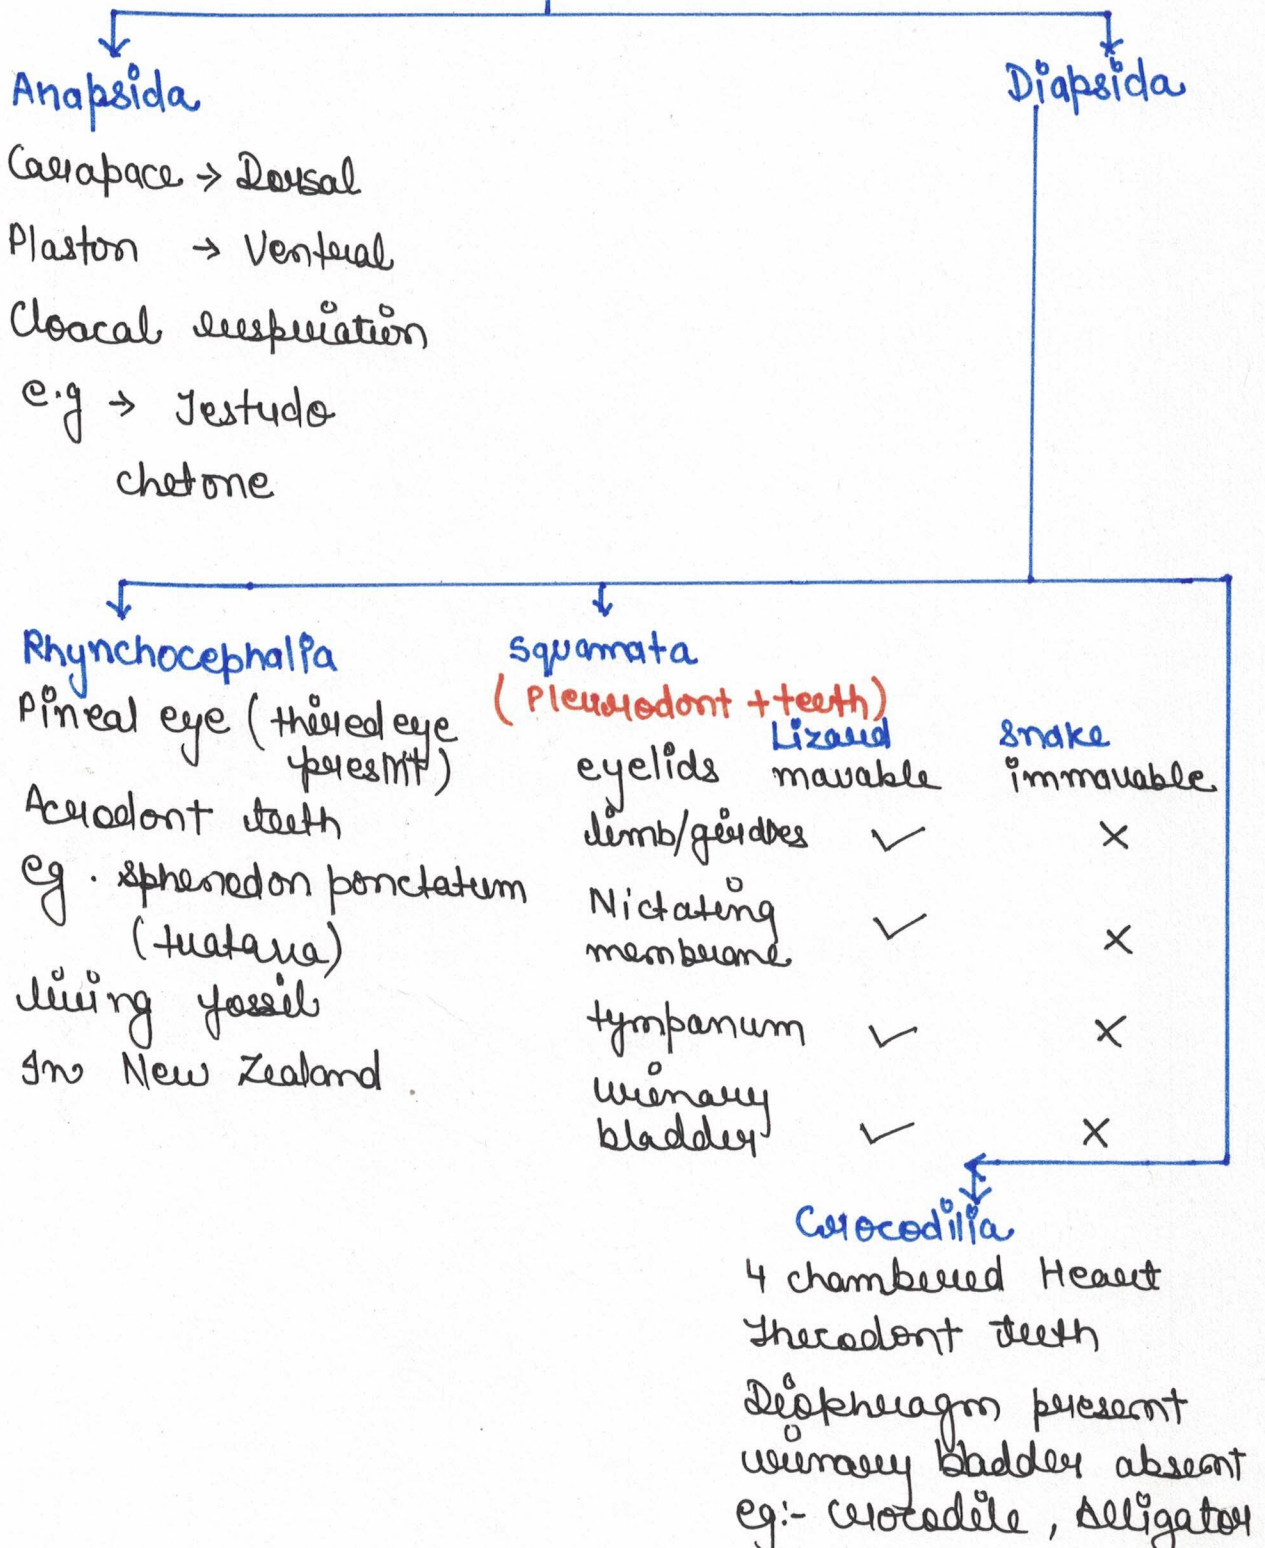 Anapsida
Diapsida
Carapace → Dorsal
Plaston → Ventral
Cloacal respiration
e.g → Testudo
chetone
Rhynchocephalia
Pineal eye (thired eye
present)
Acrodont teeth
eg. sphenodon ponctatum
(tuatara)
living fossil
In New Zealand
Squamata
(Pleurodont + teeth)
Lizard snake
eyelids movable immovable
limb/girdles ✓ ×
Nictating
membrane ✓ ×
tympanum ✓ ×
urinary
bladder ✓ ×
Crocodilia
4 chambered Heart
Thecodont teeth
Diaphragm present
urinary bladder absent
eg:- crocodile, Alligator